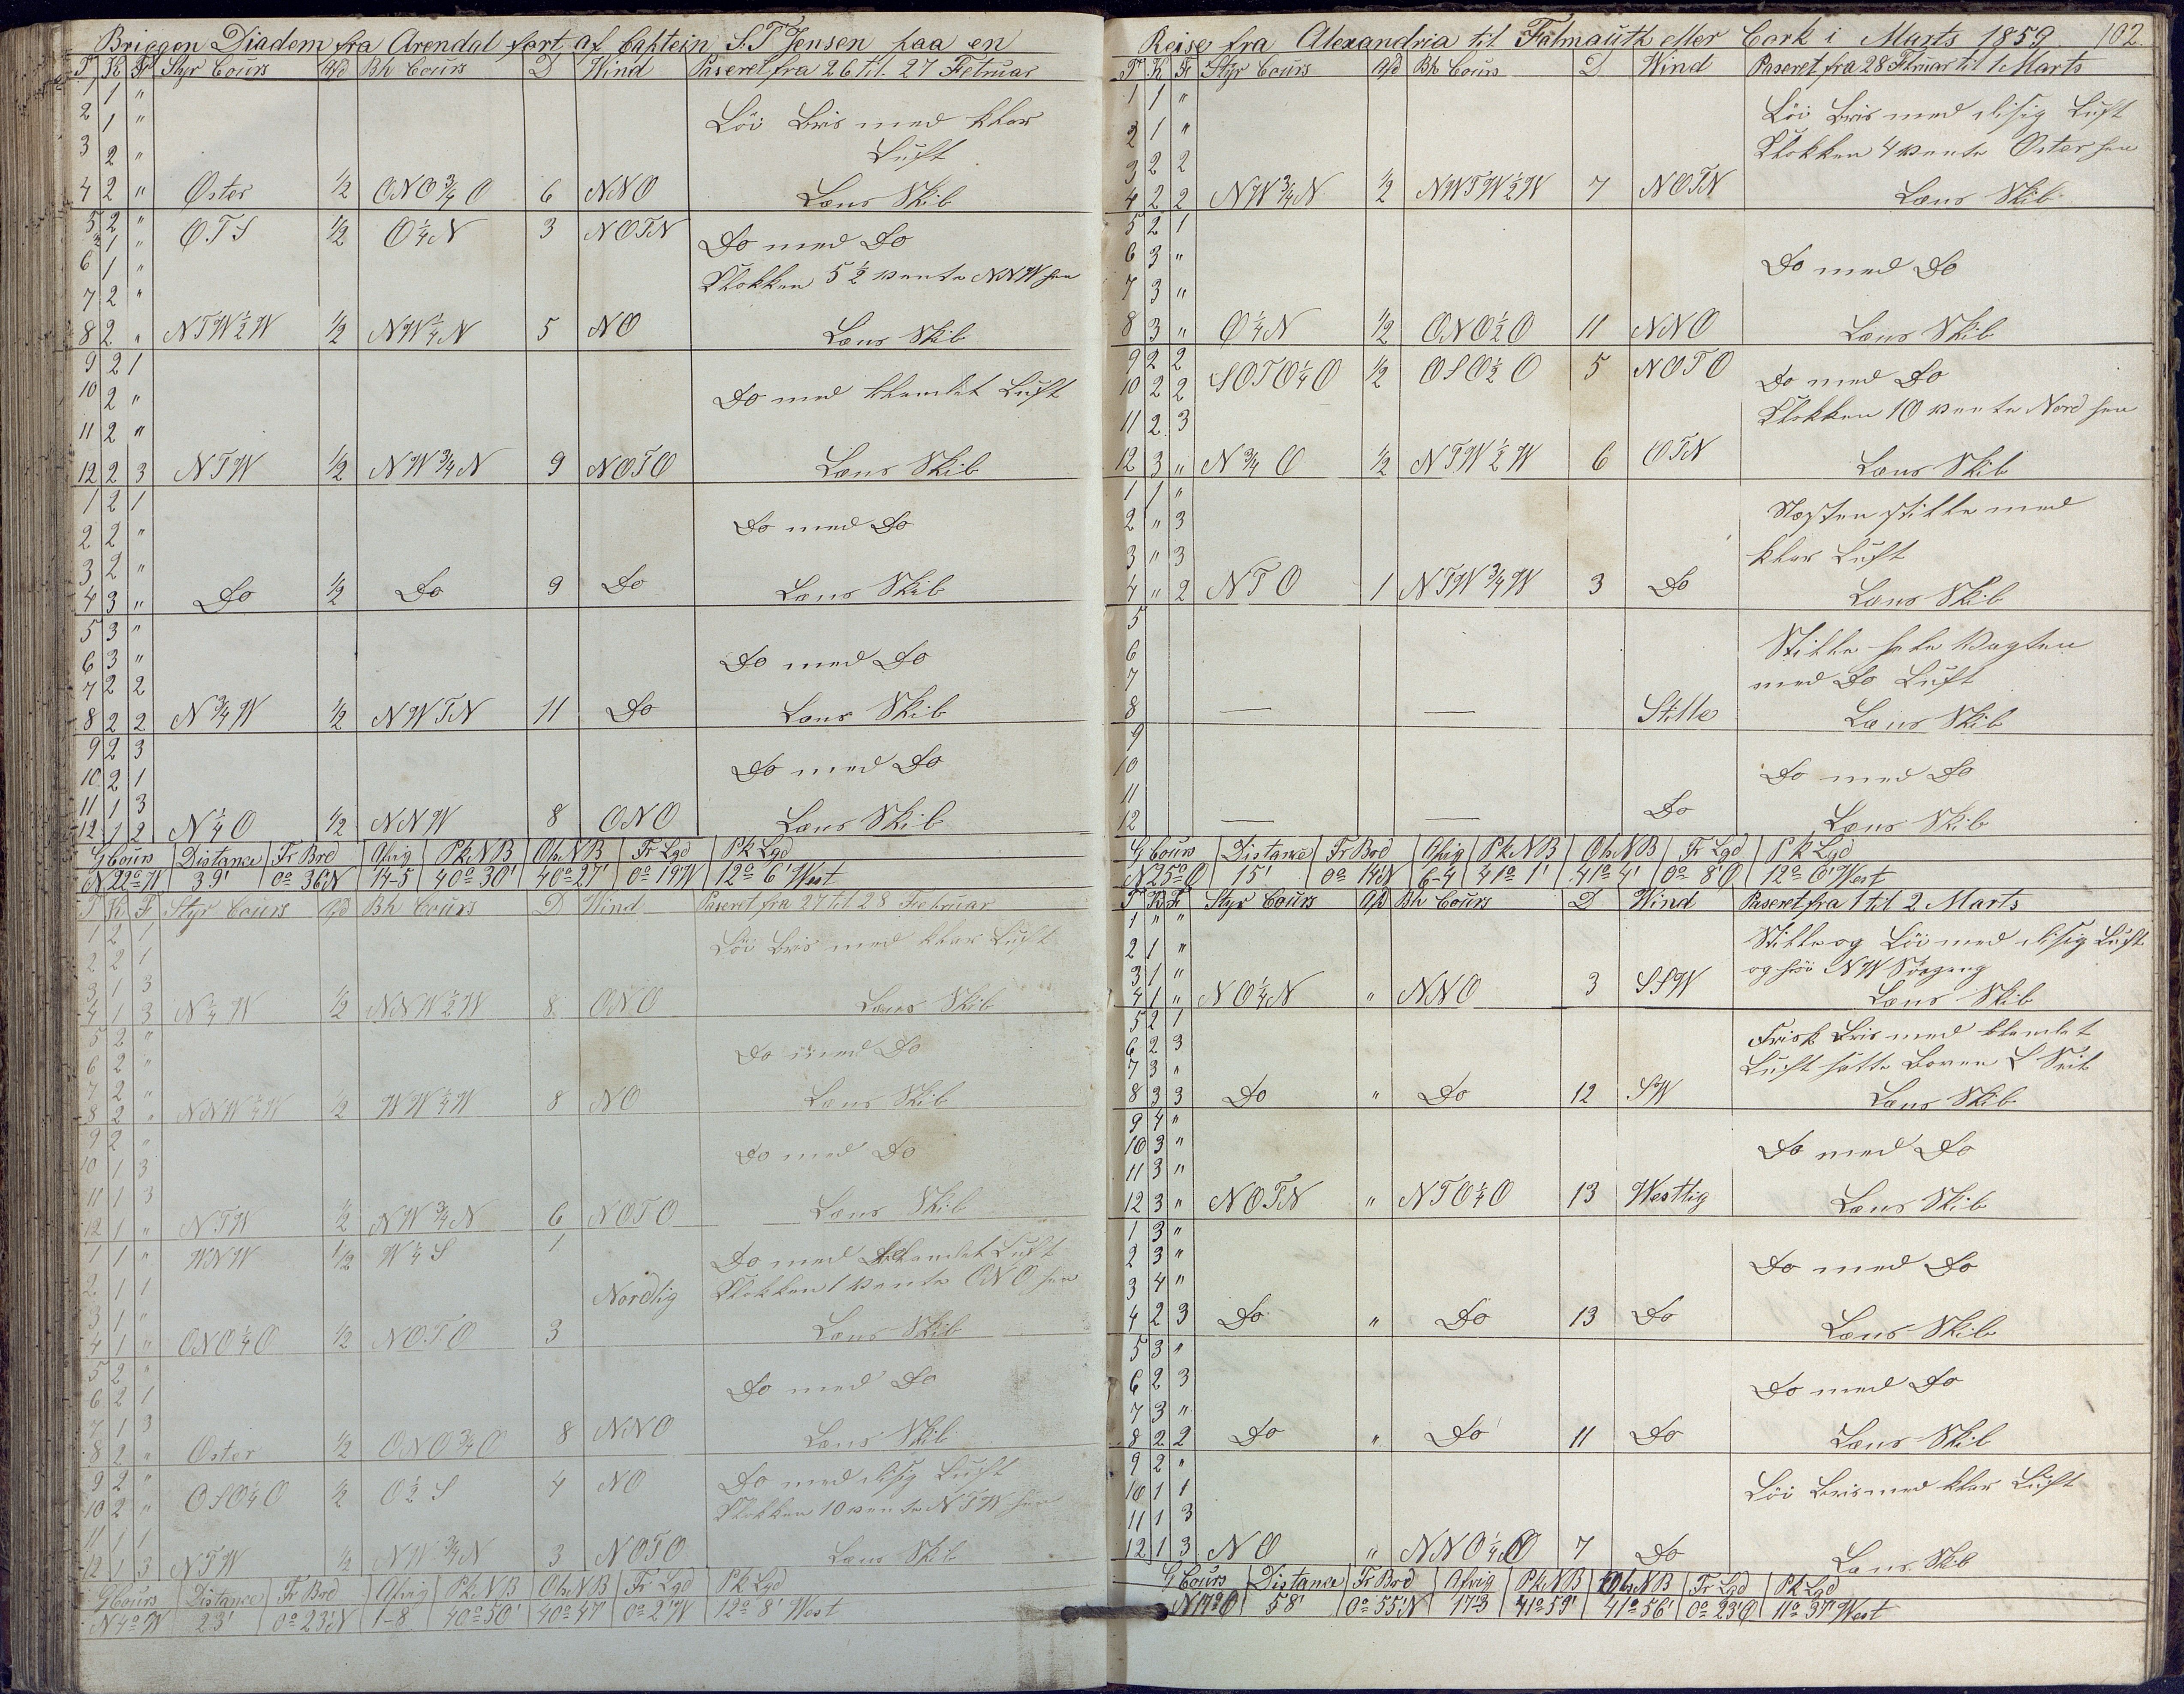 Briggen Diadem fra Arendal fört af Captein S. T Jensen paa en
T K F Styr Cours Afd Bh Cours D Wind Paseret fra 26 til 27 Februar
1 1 "
2 1 " Löi Bris med klar
3 2 " Luft
4 2 " Öster ½ ONO¾O 6 NNO Læns Skib
5 2 " OTS ½ O¼N 3 NOTN Do med Do
½ 1 "
6 1 " Klokken 5½ vente NNW hen
7 2 "
8 2 " NTW½W ½ NW¼N 5 NO Læns Skib
9 2 1
10 2 " Do med skandet Luft
11 2 "
12 2 3 NTW ½ NW¾N 9 NOTO Læns Skib
1 2 1
2 2 " Do med Do
3 2 "
4 3 " Do ½ Do 9 Do Læns Skib
5 3 "
6 3 " Do med Do
7 2 2
8 2 2 N¾W ½ NWTN 11 Do Læns Skib
9 2 3
10 2 1 Do med Do
11 1 3
12 1 2 N¼O ½ NNW 8 ONO Læns Skib
G Cours Distance Fr Brd Afvig Pk NB Obs NB Fr Lgd Pk Lgd
N 22° W 39' 0° 36'N 14-5 40° 30' 40° 27' 0° 19'W 12° 6' West
T K F Styr Cours Afd Bh Cours D Wind Paseret fra 27 til 28 Februar
1 2 1 Löi Bris med klar Luft
2 2 1
3 1 3
4 1 3 N¼W ½ NNW½W 8 ONO Læns Skib
5 2 "
6 2 " Do med Do
7 2 "
8 2 " NNW¼W ½ WW¼W 8 NO Læns Skib
9 2 "
10 1 3 Do med Do
11 1 3
12 1 " NTW ½ NW¾N 6 NOTO Læns Skib
1 1 " WNW ½ W¼S 1 Do med Luft
2 1 1 Nordlig Klokken 1 vente ONO hen
3 1 "
4 1 " ONO¼O ½ NOTO 3 Læns Skib
5 2 "
6 2 1 Do med Do
7 1 3
8 2 " Oster ½ ONO¾O 8 NNO Læns Skib
9 2 " OSO¼O ½ O½S 4 NO Do med disig Luft
10 2 " Klokken 10 vente NTW hen
11 1 1
12 1 3 NTW ½ NW¾N 3 NOTO Læns Skib
G Cours Distance Fr Brd Afvig Pk NB Obs NB Fr Lgd Pk Lgd
N 4° W 23' 0° 23'N 1-8 40° 50' 40° 47' 0° 2'W 12° 8' West
Reise fra Alexandria til Falmauth eller Cork i Marts 1859 102.
T K F Styr Cours Afd Bh Cours D Wind Paseret fra 28 Februar til 1 Marts
1 1 " Löi Bris med disig Luft
2 1 " Klokken 4 vente Oster hen
3 2 2
4 2 2 NW¾N ½ NWTW½W 7 NOTN Læns Skib
5 2 1
6 3 " Do med Do
7 3 "
8 3 " O¼N ½ ONO½O 11 NNO Læns Skib
9 2 2 SOTO¼O ½ OSO½O 5 NOTO Do med Do
10 2 2
11 2 3 Klokken 10 vente Nord hen
12 3 " N¾O ½ NTW½W 6 OTN Læns Skib
1 1 "
2 " 3 Næsten stille med
3 " 3 klar Luft
4 " 2 NTO 1 NTW¾W 3 Do Læns Skib
5
6 Stille hele Vagten
7 med Do Luft
8 — — Stille Læns Skib
9
10 Do med Do
11
12 — — Do Læns Skib
G Cours Distance Fr Brd Afvig Pk NB Obs NB Fr Lgd Pk Lgd
N 25° O 15' 0° 14'N 6-4 41° 1' 41° 4' 0° 8'O 12° 0' West
T K F Styr Cours Afd Bh Cours D Wind Paseret fra 1 til 2 Marts
1 " " Stille og Löi med disig Luft
2 1 "
3 1 " og höi NW Söegang
4 1 " NO¼N " NNO 3 SSW Læns Skib
5 2 1
6 2 3 Frisk Bris med skandet
7 3 " Luft satte Boven L Seil
8 3 3 Do " Do 12 SW Læns Skib
9 4 "
10 3 " Do med Do
11 3 "
12 3 " NOTN " NTO¼O 13 Westlig Læns Skib
1 3 "
2 3 " Do med Do
3 4 "
4 2 3 Do " Do 13 Do Læns Skib
5 3 "
6 2 3 Do med Do
7 3 "
8 2 2 Do " Do 11 Do Læns Skib
9 2 "
10 1 1 Löi Bris med klar Luft
11 1 3
12 1 3 NO " NNO¼O 7 Do Læns Skib
G Cours Distance Fr Brd Afvig Pk NB Obs NB Fr Lgd Pk Lgd
N 17° O 58' 0° 55'N 17-3 41° 59' 41° 56' 0° 23'O 11° 37' West